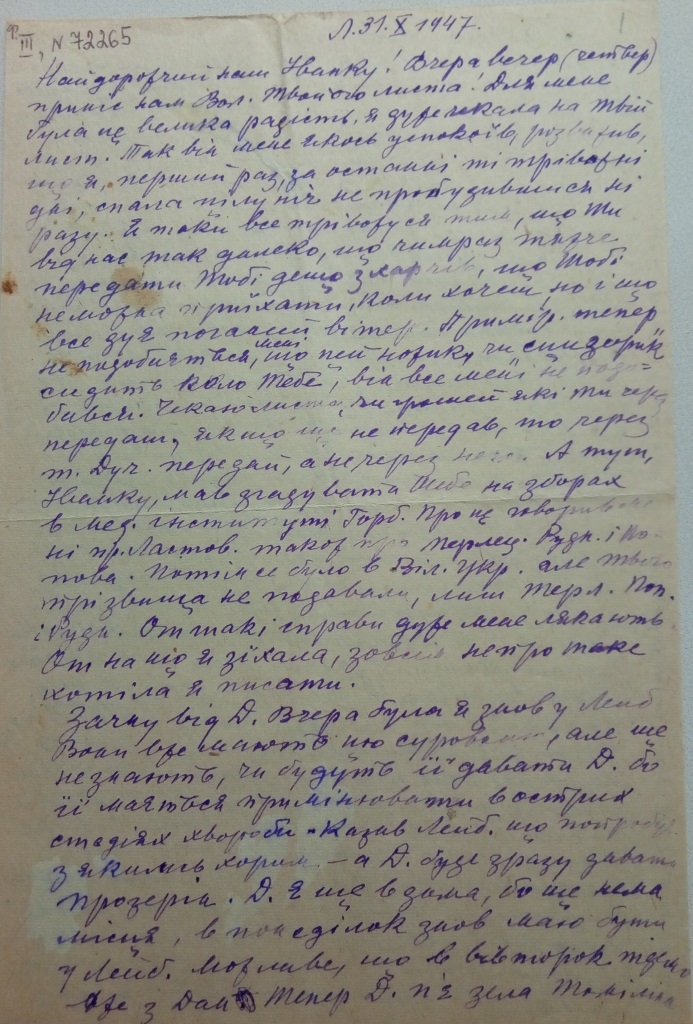 Ф. III, N 72265
1
Л. 31. X 1947.
Найдорожчий наш Іванку! Вчера вечер (четвер)
приніс нам Вол. Твойого листа! Для мене
була це велика радість, я дуже чекала на Твій
лист. Так він мене якось успокоїв, розважив,
що я, перший раз, за останні ті трівожні
дні, спала цілу ніч не пробудившися ні
разу. Я таки все трівожуся тим, що Ти
від нас так далеко, що чимраз тяжче
передати Тобі дещо з харчів, що Тобі
неможна приїхати, коли хочеш, но і що
все дує поганий вітер. Примір. тепер
не подобається мені, що цей новик, чи
сидить коло Тебе, він все мені не подо-
бився. Чекаю листа, чи грошей які Ти
передаш, якщо ще не передав, то через
т. Дуч. передай, а не через А тут,
Іванку, мав згадувати Тебе на зборах
в мед. інституті Горб. Про це говорив
ні пр. Ластов. також про Перлец. Рудн. і Ко-
пова. Потім се було в Віл. Укр. але твого
прізвища не подавали, лиш Терл. Поп.
і Рудн. От такі справи дуже мене лякають
От на що я зїхала, зовсім не про таке
хотіла я писати.
Зачну від Д. Вчера була я знов у Лейб
Вони вже мають цю суровицю, але ще
не знають, чи будуть її давати Д. бо
її мається примінювати в острих
стадіях хвороби. Казав Лейб. що попробує
з якимсь хорим – а Д. буде зразу давати
прозерін. Д. є ще вдома, бо ще нема
місця, в понеділок знов маю бути
у Лейб. Можливе, що в вівторок підемо
вже з Дан Тепер Д. п'є зела